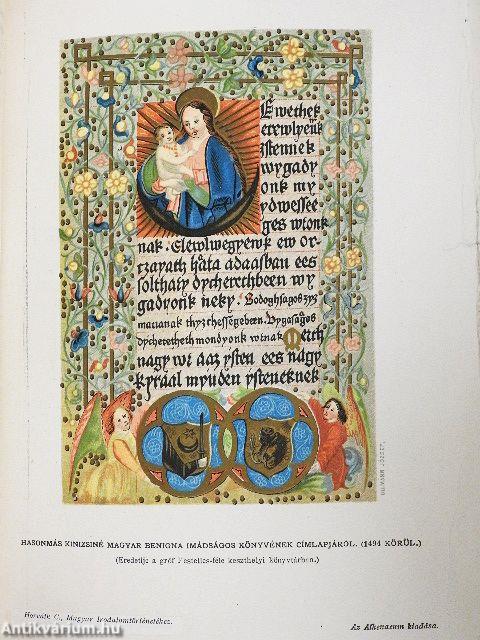 Ewethek
erewlyenk
ystennek
wygady
onk my
ydwessee
ges wronk
nak. Elewlwegyewk ew or-
rzayath hata adaasban ees
solthaty dycherethbeen wy
gadvonk neky. Bodoghsagos zyz
marianak thyzthessegebeen. Bygasagos
dycheretheth mondyonk wrnak Merth
nagy wr aaz ysten ees nagy
kyraal mynden ysteneknek
ULLMANN JÓZSEF.
HASONMÁS KINIZSINÉ MAGYAR BENIGNA IMÁDSÁGOS KÖNYVÉNEK CÍMLAPJÁRÓL. (1494 KÖRÜL.)
(Eredetije a gróf Festetics-féle keszthelyi könyvtárban.)
Horváth C., Magyar Irodalomtörténetéhez.
Az Athenaeum kiadása.
Antikvárium.hu
http://www.antikvarium.hu